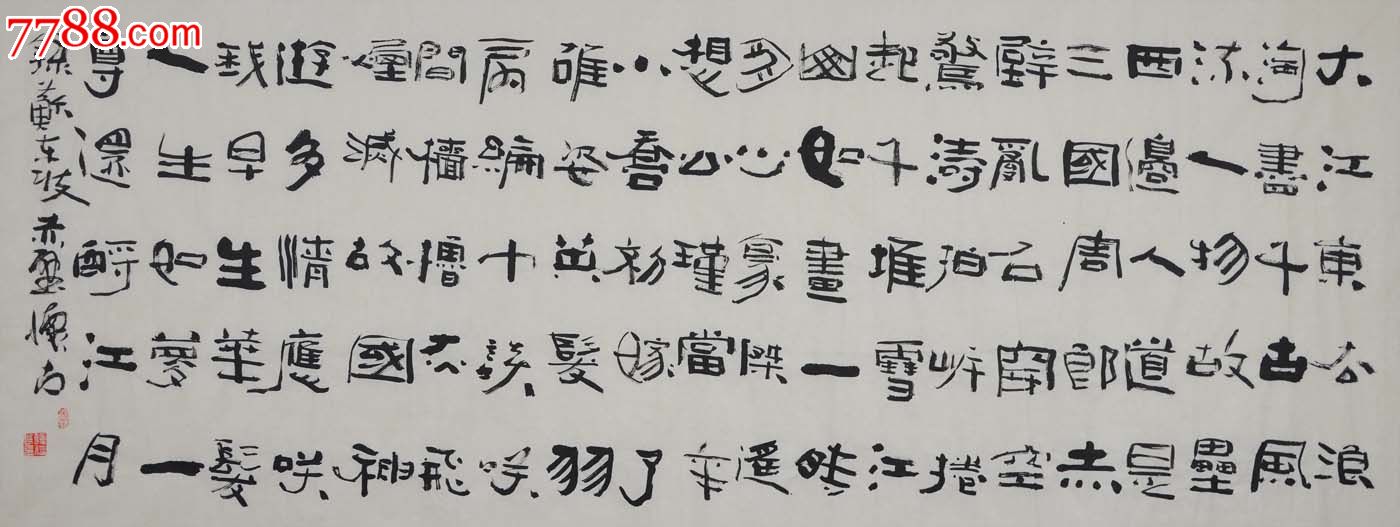 7788.com
大江東去浪
淘盡千古風
流人物故壘
西邊人道是
三國周郎赤
壁亂石穿空
驚濤拍岸捲
起千堆雪江
如畫一時
多少豪傑遙
想公瑾當年
小喬初嫁了
雄姿英髮羽
扇綸巾談笑
間檣櫓灰飛
煙滅故國神
遊多情應笑
我早生華髮
人生如夢一
尊還酹江月
錄蘇東坡赤壁懷古